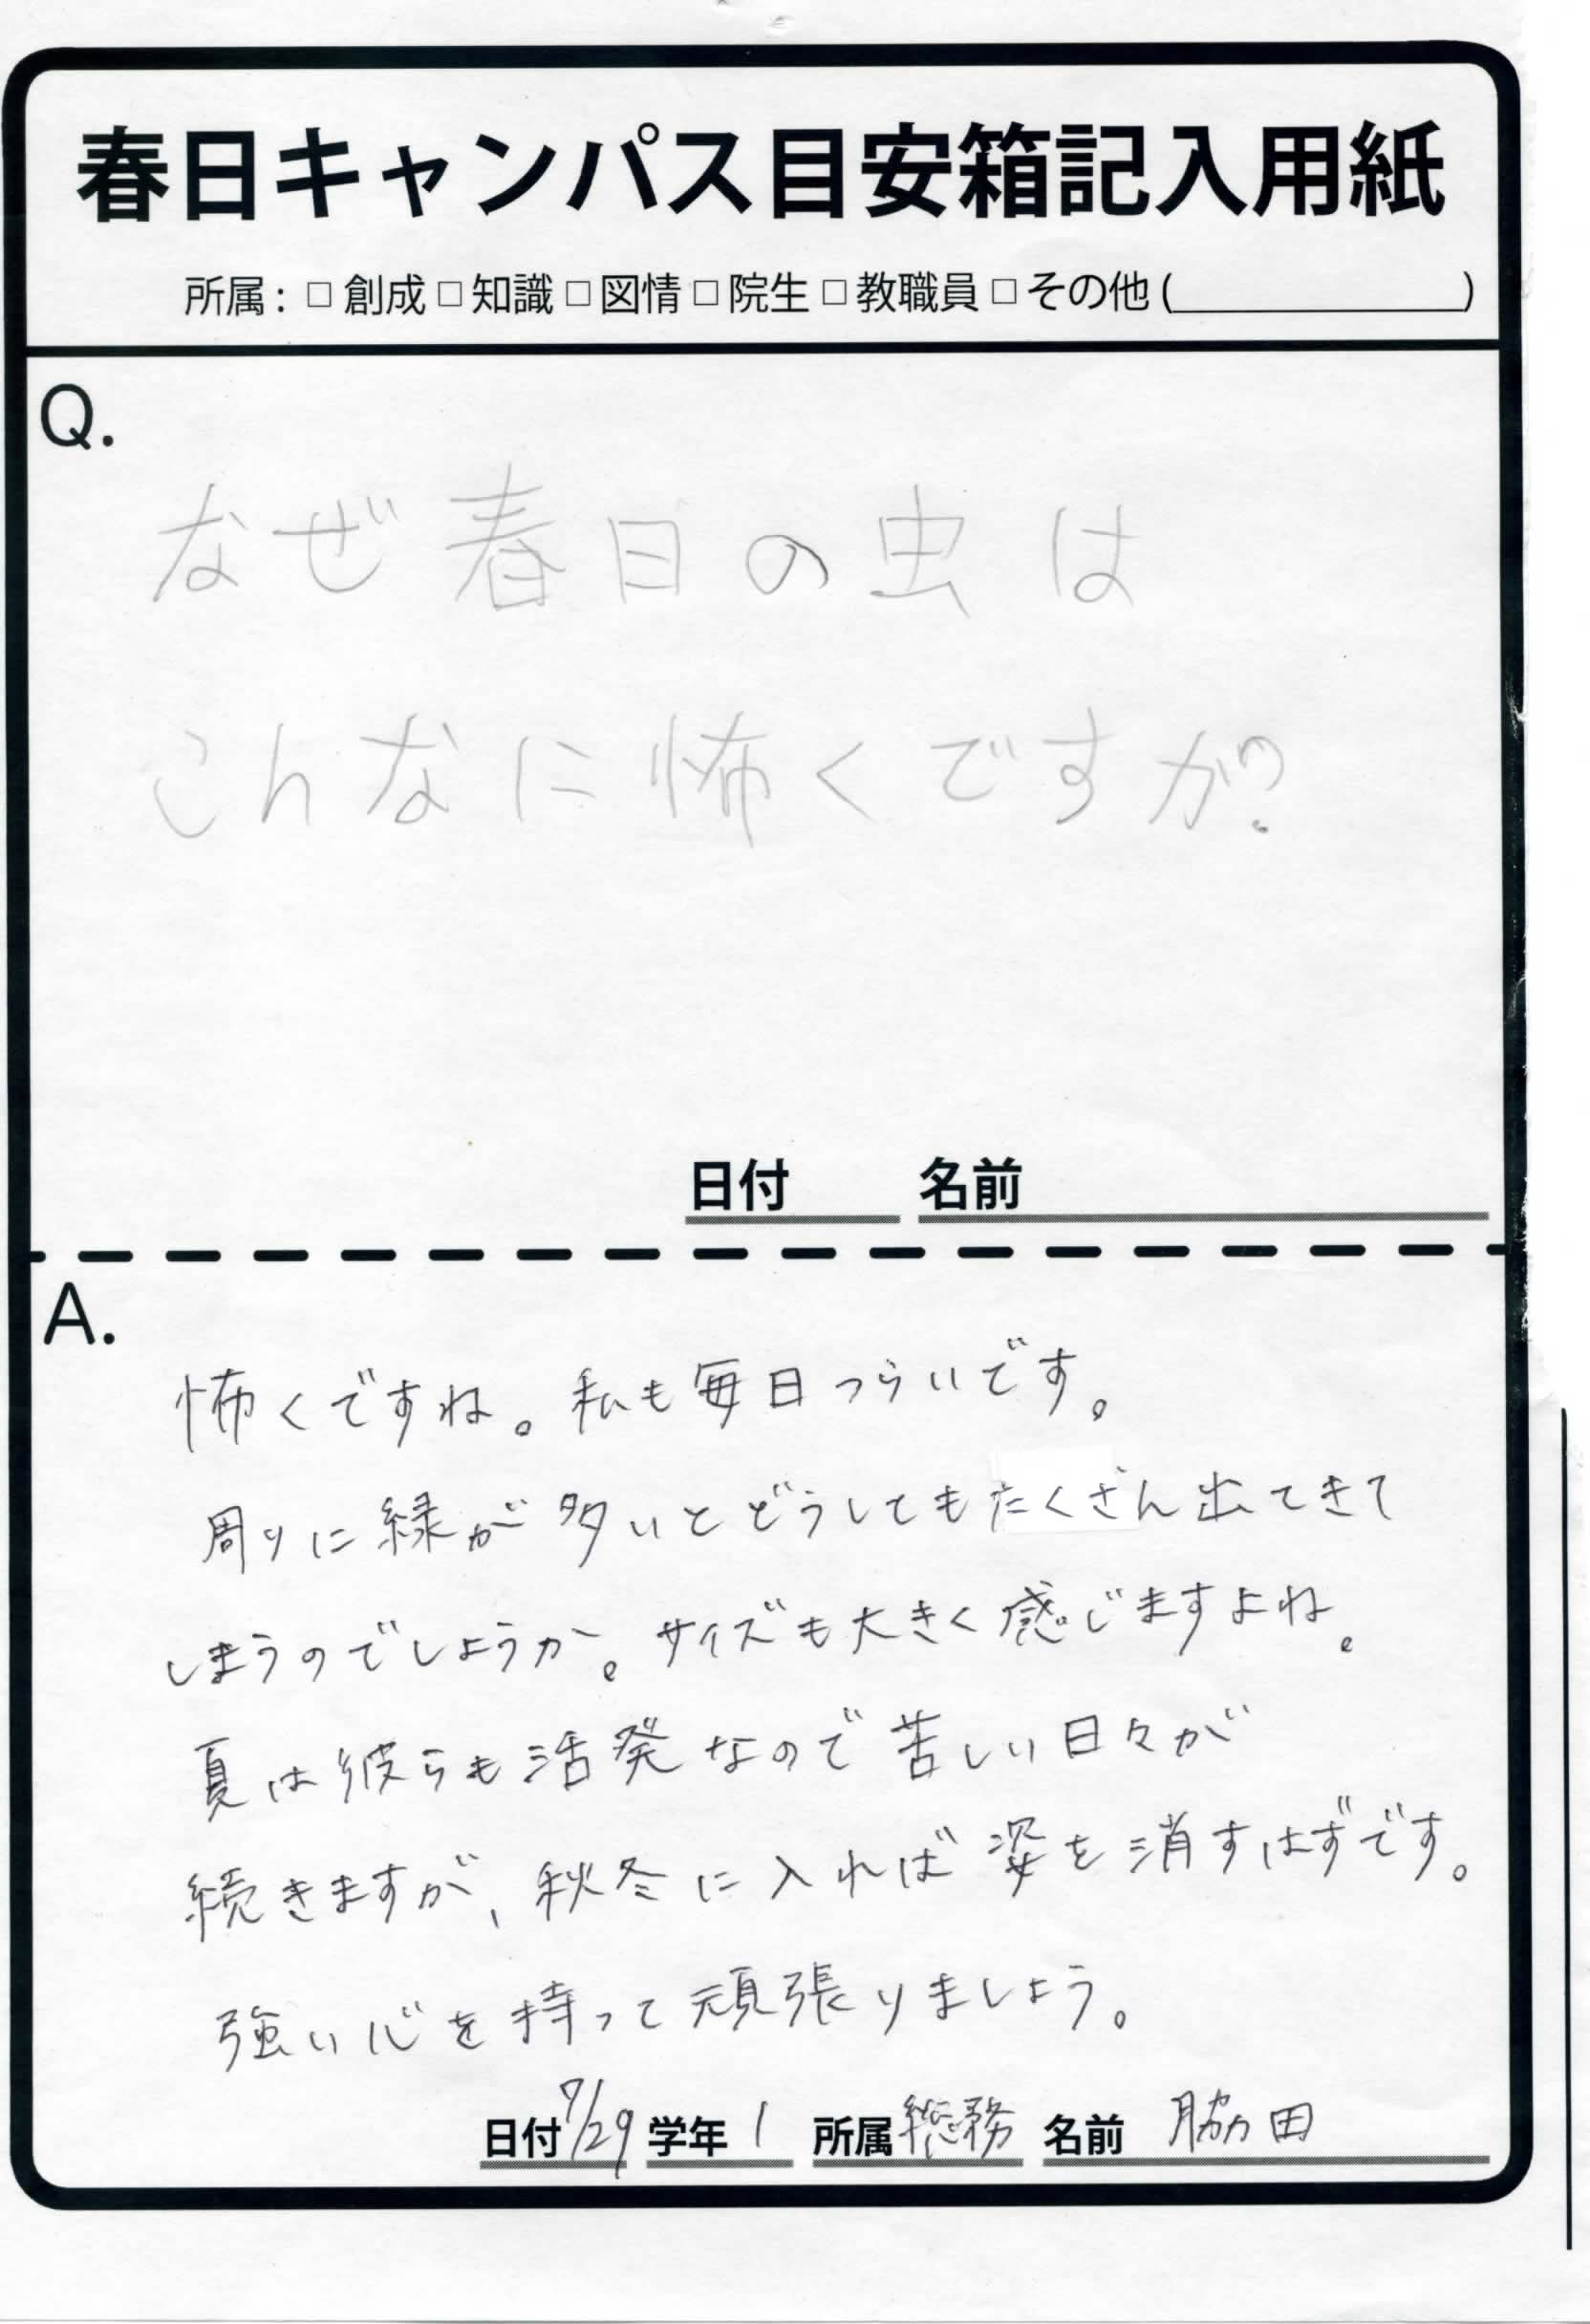 春日キャンパス目安箱記入用紙
所属: □ 創成 □ 知識 □ 図情 □ 院生 □ 教職員 □ その他 (            )
Q.
なぜ春日の虫は
こんなに怖くですか?
日付 名前
A.
怖くですね。私も毎日つらいです。
周りに緑が多いとどうしてもたくさん出てきて
しまうのでしょうか。サイズも大きく感じますよね。
夏は彼らも活発なので苦しい日々が
続きますが、秋冬に入れば姿を消すはずです。
強い心を持って頑張りましょう。
日付 7/29 学年 1 所属 総務 名前 脇田